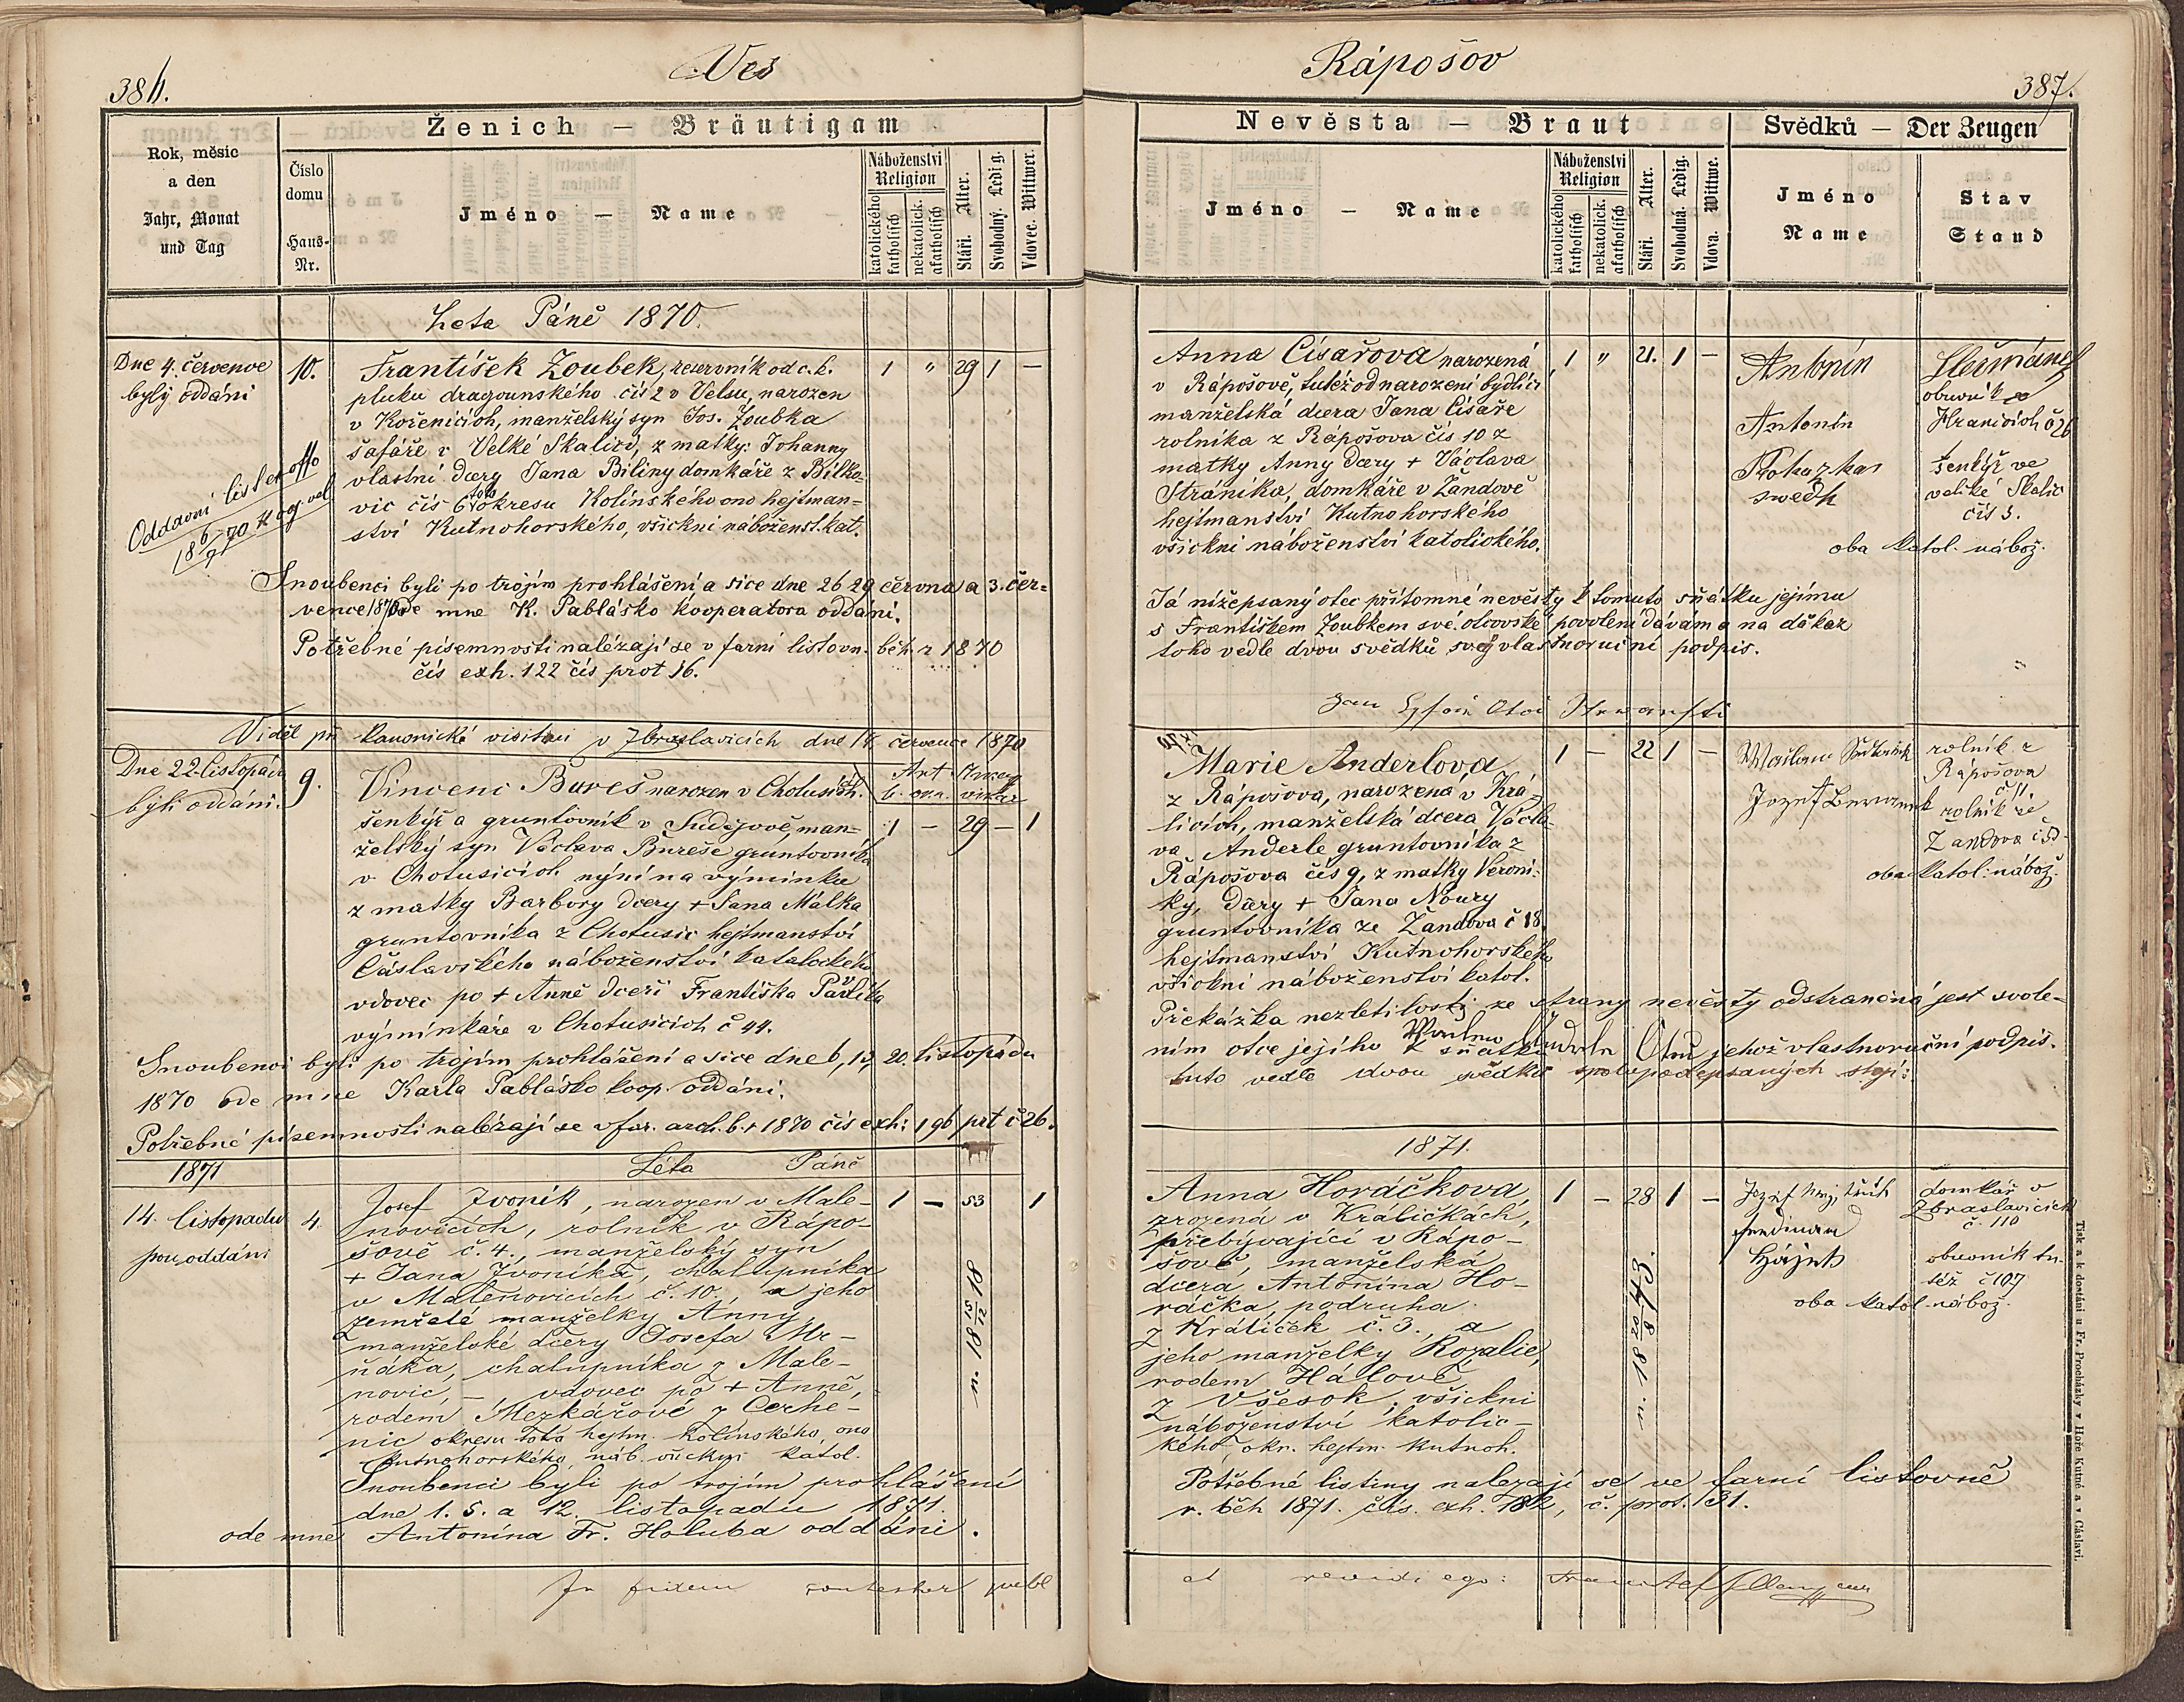 386.
Ves
Ženich — Bräutigam
Rok, měsíc
a den
Jahr, Monat
und Tag
Číslo
domu
Haus-
Nr.
Jméno — Name
Náboženství
Religion
katolického
katholisch
nekatolick.
akatholisch
Stáří. Alter.
Svobodný. Ledig.
Vdovec. Wittwer.
Leta Páně 1870.
Dne 4. července
byly oddáni
10.
František Zoubek, reservník od c. k.
1 " 29 1 —
pluku dragounského čís 2 v Velsu, narozen
v Kořenicích, manželský syn Jos. Zoubka
šafáře v Velké Skalici, z matky: Johanny
vlastní dcery Jana Biliny domkáře z Bilko-
vic čís 6 toto okresu Kolínského ono hejtman-
ství Kutnohorského, všickni náboženst. kat.
Oddavní list ex offo
Snoubenci byli po trojím prohlášení a sice dne 26 29 června a 3. čer-
vence 1870 ode mne K. Pablásko kooperatora oddáni.
Potřebné písemnosti nalézají se v farní listovn. běh. r 1870
čís exh. 122 čís prot 16.
Viděl při kanonické visitaci v Zbraslavicích dne 14 července 1870
Dne 22. listopadu
byli oddáni.
9.
Vincenc Bureš narozen v Chotusích.
šenkýř a gruntovník v Sudějově, man-
1 — 29 — 1
želský syn Václava Bureše gruntovníka
v Chotusicích nýní na výminku
z matky Barbory dcery + Jana Málka
gruntovníka z Chotusic hejtmanství
Čáslavského náboženství katolockého
vdovec po + Anně dceři Františka Pavlíka
výminkáře v Chotusicích č 44.
Snoubenci byli po trojím prohlášení a sice dne 6, 13, 20. listopadu
1870 ode mne Karla Pablásko koop. oddáni.
Potřebné písemnosti nalézají se v far. arch. b. r 1870 čís exh: 196 prt č 26.
1871 Léta Páně
14. listopadu
jsou oddáni
4.
Josef Zvoník, narozen v Male-
1 — 53 1
novicích, rolník v Rápo-
šově č. 4., manželský syn
+ Jana Zvoníka, chalupníka
v Malenovicích č. 10. a jeho
zemřelé manželky Anny,
manželské dcery Josefa Mr-
ňáka, chalupníka z Male-
novic, — vdovec po + Anně,
rodem Mezkářové z Cerhe-
nic okresu toto hejtm. Kolínského, ono
Kutnohorského, náb. všickni katol.
n. 18 5/12 18
Snoubenci byli po trojím prohlášení
dne 1. 5. a 12. listopadu 1871.
ode mně Antonína Fr. Holuba oddáni.
In fidem
Rápošov
387.
Nevěsta — Braut
Svědků — Der Zeugen
Jméno — Name
Náboženství
Religion
katolického
katholisch
nekatolick.
akatholisch
Stáří. Alter.
Svobodná. Ledig.
Vdova. Wittwe.
Jméno
Name
Stav
Stand
Anna Císařova narozená
1 " 21. 1 —
v Rápošově, tutéž od narození bydlící
manželská dcera Jana Císaře
rolníka z Rápošova čís 10 z
matky Anny dcery + Václava
Stráníka, domkáře v Žandově
hejtmanství Kutnohorského
všickni náboženství katolického.
Antonín
obuvník
Antonín
Hranicích č 26
Prohazka
svedk
šenkýř ve
veliké Skalic
čís 3.
oba katol. nábož.
Já nížepsaný otec přítomné nevěsty k tomuto sňatku jejímu
s Františkem Zoubkem své otcovské povolení dávám a na důkaz
toho vedle dvou svědků svůj vlastnoruční podpis.
Marie Anderlova
1 — 22 1 —
z Rápošova, narozena v Krá-
licích, manželská dcera Václa-
va Anderle gruntovníka z
Rápošova čís 9, z matky Veroni-
ky, dcery + Jana Noury
gruntovníka ze Žandova č 18,
hejtmanství Kutnohorského
všickni náboženství katol.
rolník z
Rápošova
č 11
rolník ze
Žandova
oba katol: nábož.
Překážka nezletilosti ze strany nevěsty odstraněná jest svole-
ním otce jejího k sňatku jehož vlastnoruční podpis.
tuto vedle dvou svědků spolupodepsaných stojí:
1871.
Anna Horáčkova,
1 — 28 1 —
zrozená v Králičkách,
přebývající v Rápo-
šově, manželská
dcera Antonína Ho-
ráčka, podruha
z Králiček č. 3. a
jeho manželky Rozalie,
rodem Hálové
z Všesok, všickni
náboženství katolic-
kého okr. hejtm. Kutnoh.
domkář v
Zbraslavicích
č. 110
Hájek
obuvník tu-
též č 107
oba katol. nábož.
Potřebné listiny nalezají se ve farní listovně
r. běh 1871. čís. exh. 182, č. prot. 31.
et revidi ego:
Tisk a k dostání u Fr. Procházky v Hoře Kutné a v Čáslavi.